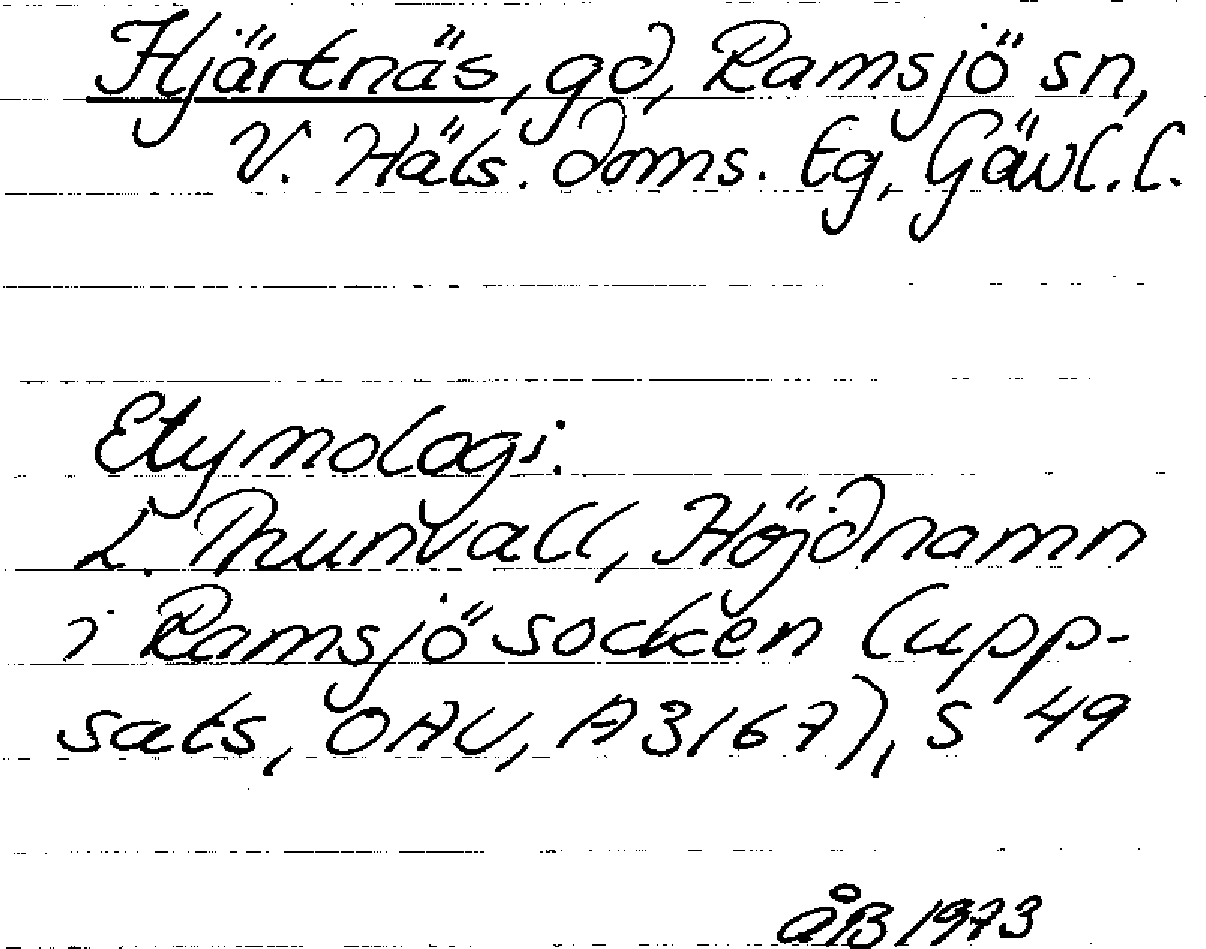 Hjärtnäs, gd, Ramsjö sn,
V. Häls. doms. tg, Gävl. l.
Etymologi.
L. Thunvall, Höjdnamn
i Ramsjö socken (upp-
sats, OAU, A3167), s 49
ÅB 1973